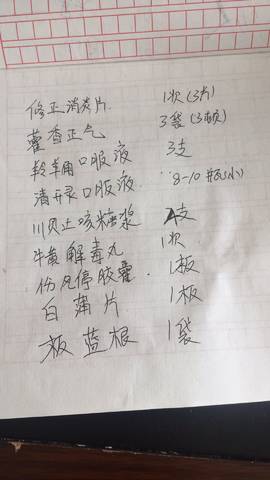 修正消炎片 1次(3片)
藿香正气 3袋(3颗)
鞣鞣口服液 3支
清开灵口服液 8-10
川贝止咳糖浆 支
牛黄解毒丸 1次
伤风停胶囊 1板
白蒲片 1板
板蓝根 1袋